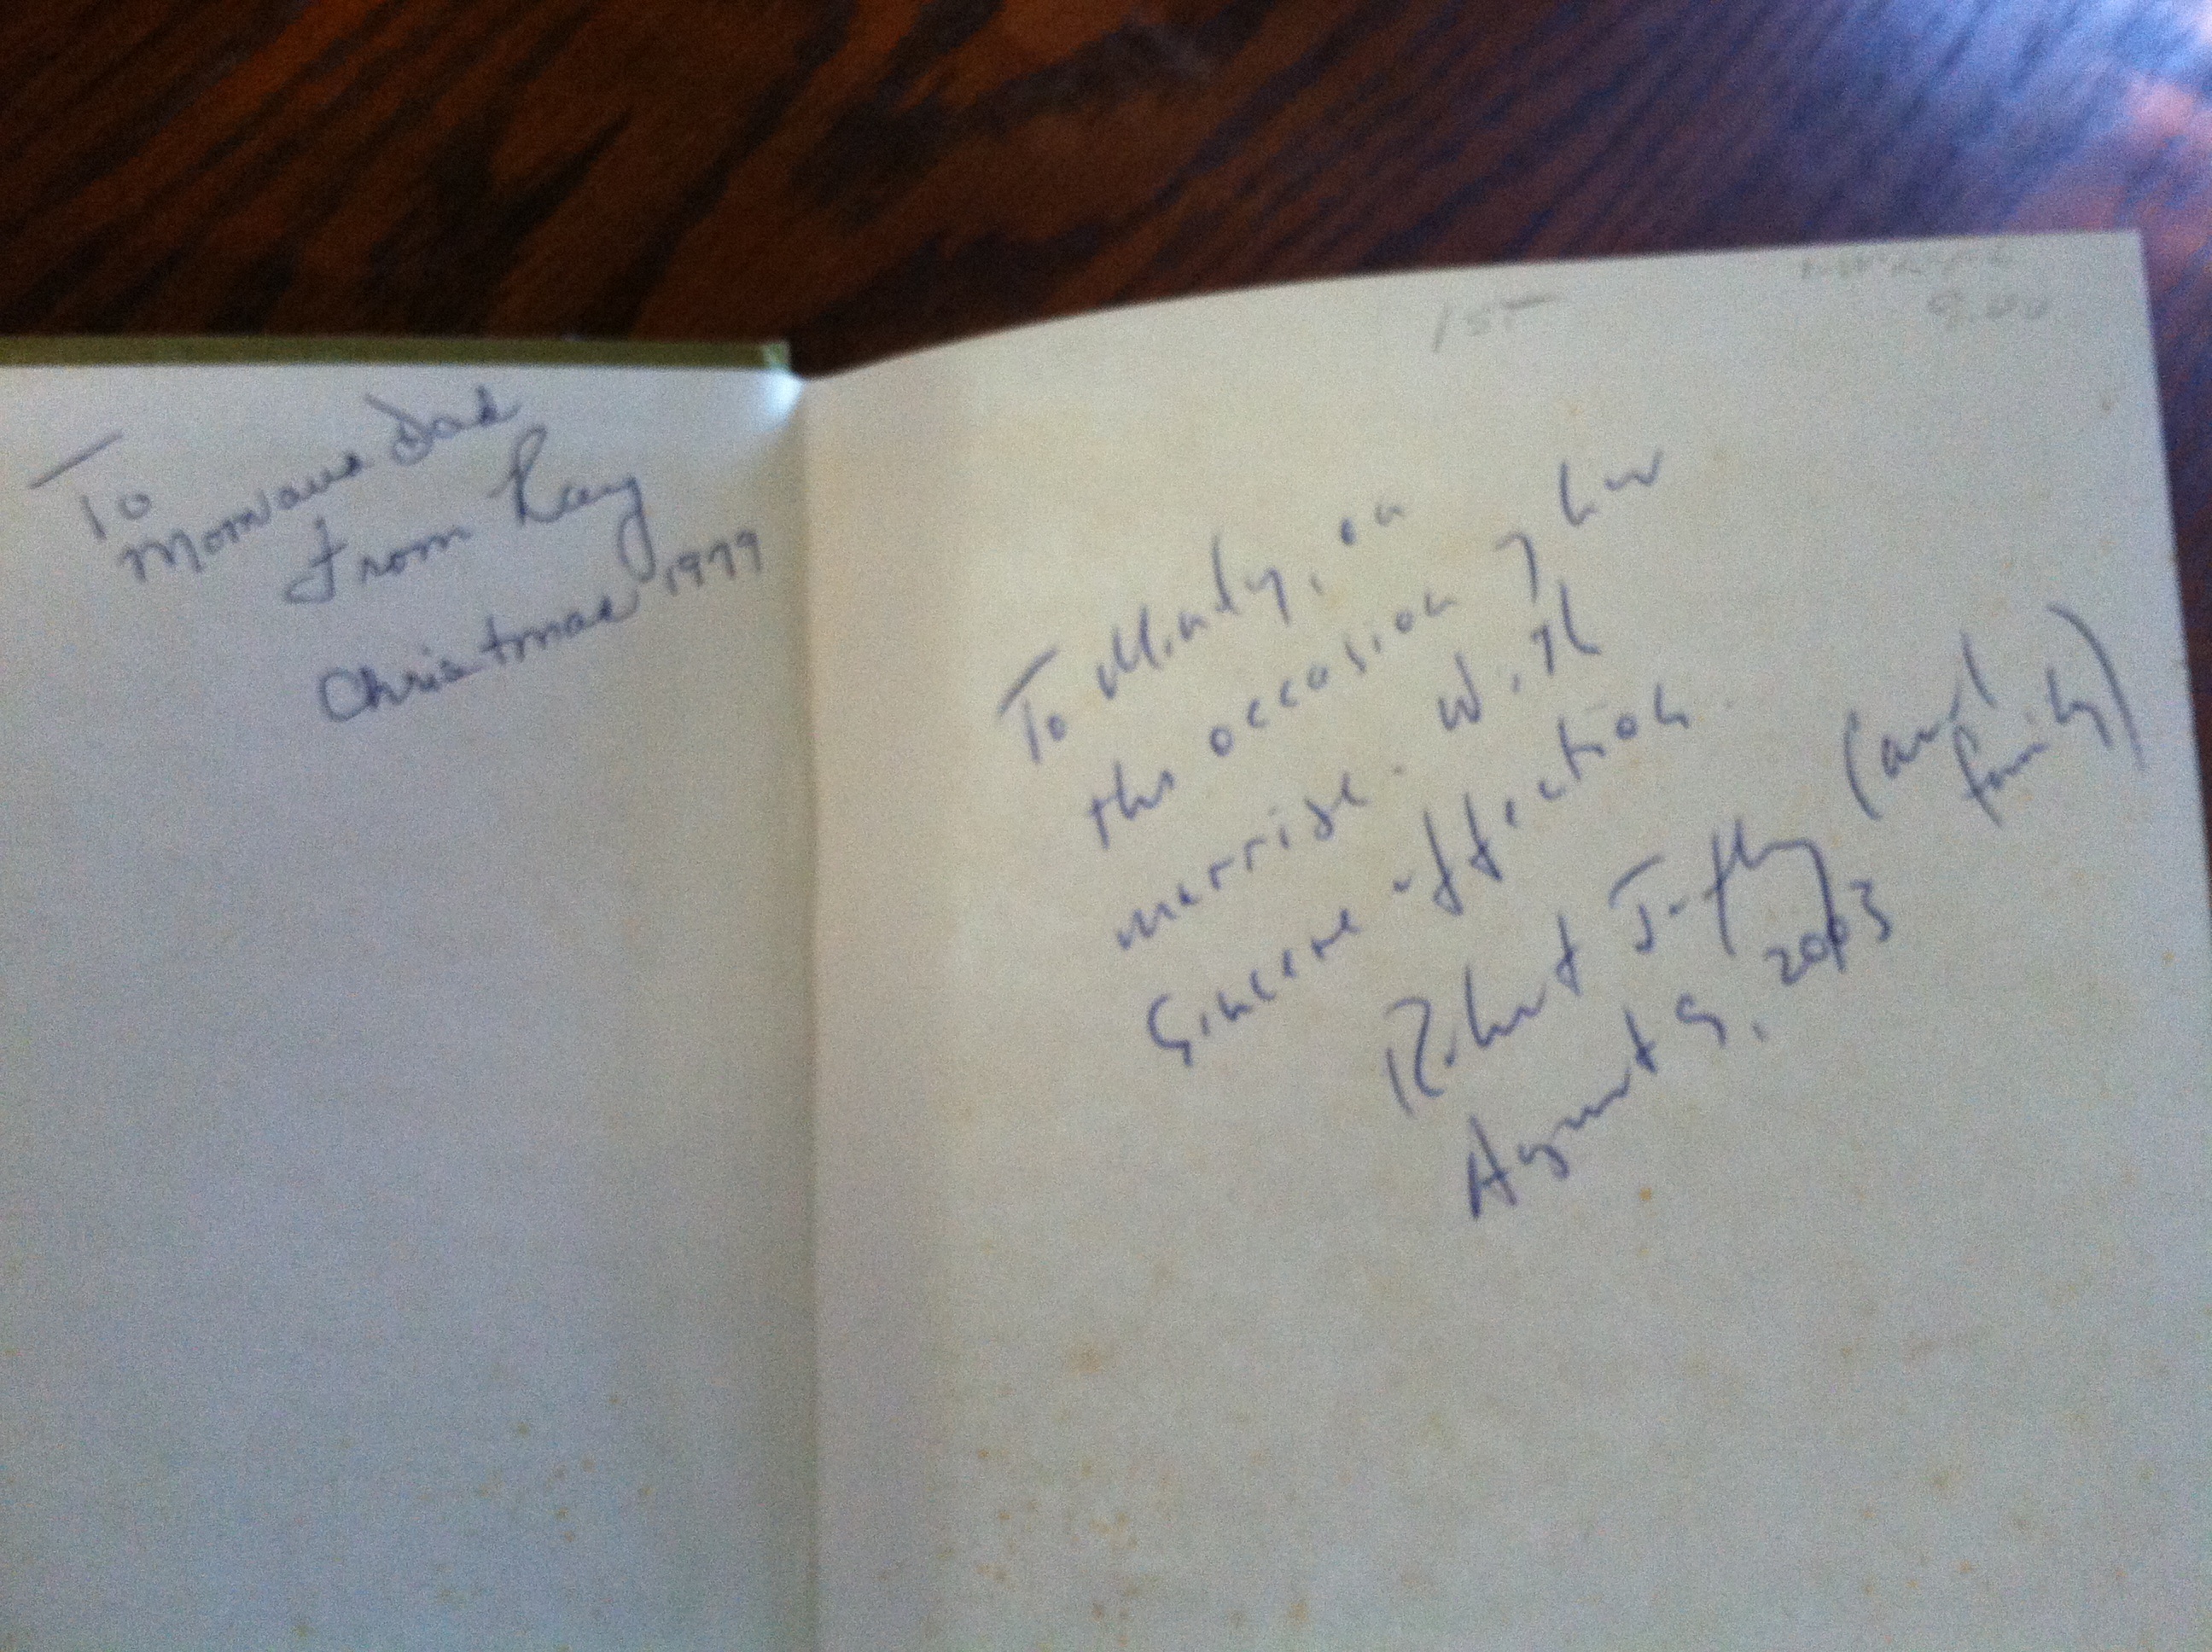 To
Mom and Dad
From Ray
Christmas 1979
1st
9.00
To Mindy, on
the occasion of her
marriage. With
sincere affection.
Robert (and
family)
August 9, 2003